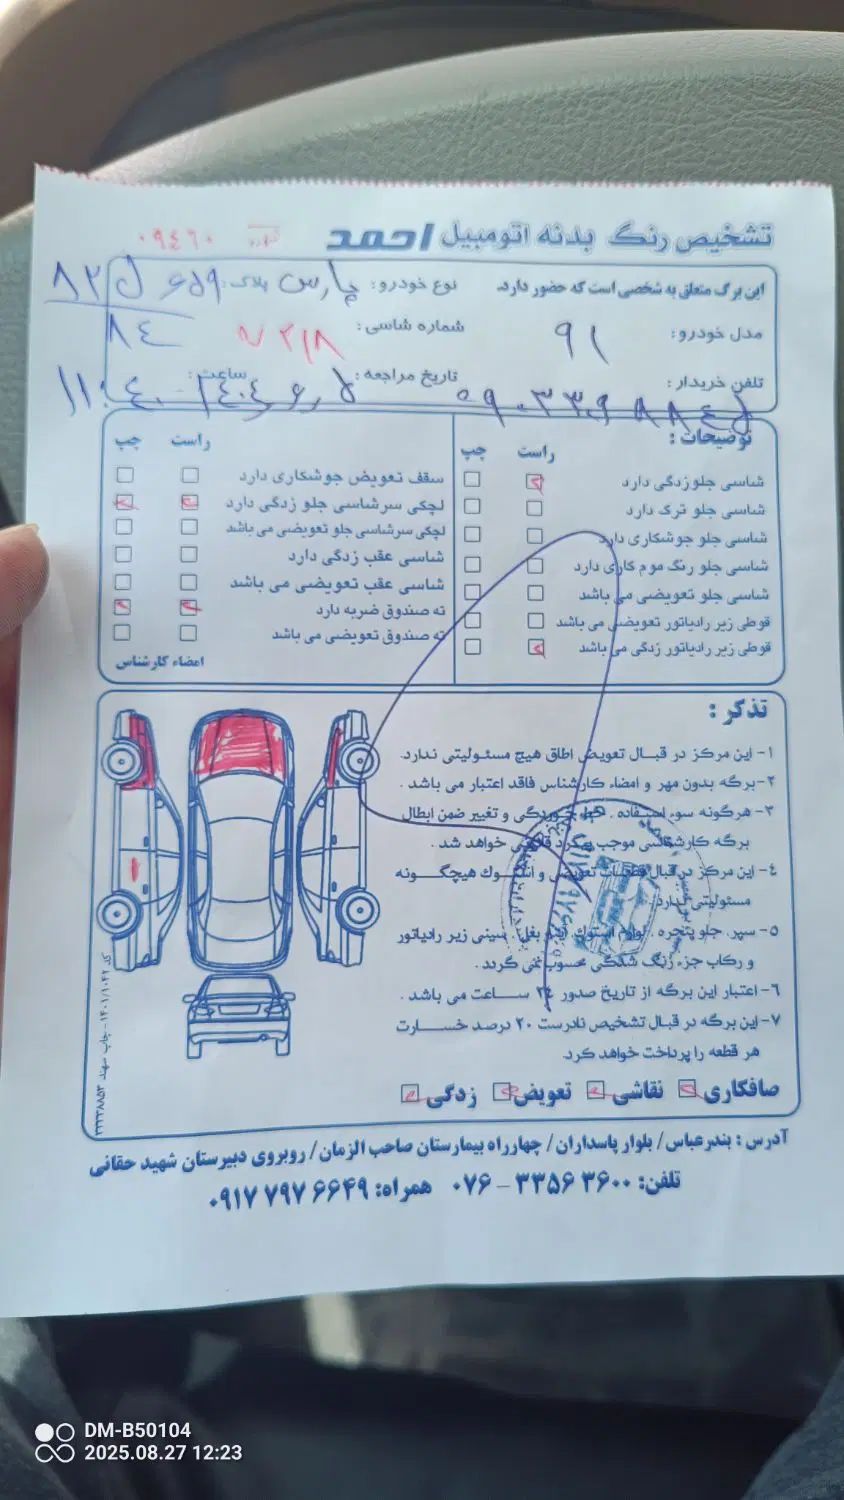 تشخیص رنگ بدنه اتومبیل احمد
شماره ۰۹٤٦۰
این برگ متعلق به شخصی است که حضور دارد.
نوع خودرو: پارس
پلاک: ٦٥٩ ل ۸۳
۸٤
مدل خودرو: ۹۱
شماره شاسی:
تلفن خریدار:
تاریخ مراجعه: ۱٤۰٤٫٦٫۵
ساعت: ۱۱:٤۰
توضیحات:
راست چپ
شاسی جلو زدگی دارد
شاسی جلو ترک دارد
شاسی جلو جوشکاری دارد
شاسی جلو رنگ موم کاری دارد
شاسی جلو تعویضی می باشد
قوطی زیر رادیاتور تعویضی می باشد
قوطی زیر رادیاتور زدگی می باشد
راست چپ
سقف تعویض جوشکاری دارد
لچکی سرشاسی جلو زدگی دارد
لچکی سرشاسی جلو تعویضی می باشد
شاسی عقب زدگی دارد
شاسی عقب تعویضی می باشد
ته صندوق ضربه دارد
ته صندوق تعویضی می باشد
امضاء کارشناس
تذکر:
۱- این مرکز در قبال تعویض اطاق هیچ مسئولیتی ندارد.
۲- برگه بدون مهر و امضاء کارشناس فاقد اعتبار می باشد.
۳- هرگونه سوء استفاده، خط خوردگی و تغییر ضمن ابطال
برگه کارشناسی موجب پیگرد قانونی خواهد شد.
٤- این مرکز در قبال قطعات تعویضی و استوک هیچگونه
مسئولیتی ندارد.
۵- سپر، جلو پنجره، لوازم استوک، سینی زیر رادیاتور
و رکاب جزء رنگ شدگی محسوب نمی گردد.
٦- اعتبار این برگه از تاریخ صدور ۲٤ ساعت می باشد.
۷- این برگه در قبال تشخیص نادرست ۲۰ درصد خسارت
هر قطعه را پرداخت خواهد کرد.
صافکاری نقاشی تعویض زدگی
کد ۱۴۰۱/۱۰۴۲ - چاپ سهند ۳۲۲۳۸۸۵۳
آدرس: بندرعباس/ بلوار پاسداران/ چهارراه بیمارستان صاحب الزمان/ روبروی دبیرستان شهید حقانی
تلفن: ۳۶۰۰ ۳۳۵۶ - ۰۷۶ همراه: ۶۶۴۹ ۷۹۷ ۰۹۱۷
DM-B50104
2025.08.27 12:23